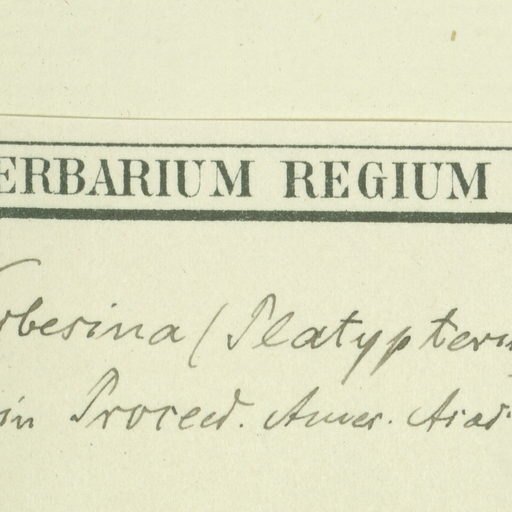 ERBARIUM REGIUM
rbesina (Platypteris
in Proceed. Amer. Acad.